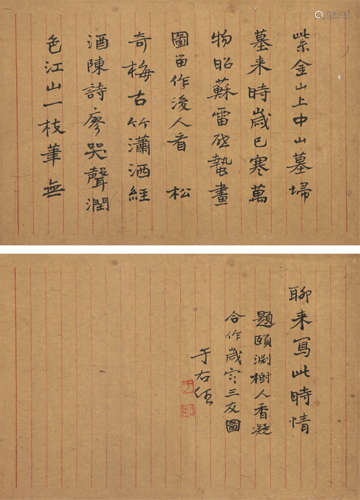 紫金山上中山墓埽
墓来時歲已寒萬
物昭蘇雷啓蟄畫
圖留作後人看 松
奇梅古竹瀟洒經
酒陳詩廖哭聲潤
色江山一枝筆無
聊来寫此時情
題頤淵樹人香凝
合作歲寒三友圖
于右任